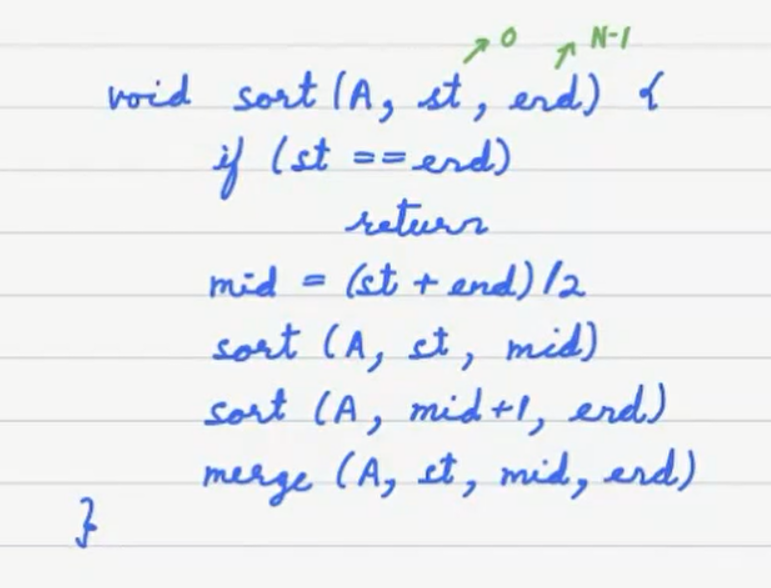 0 N-1
void sort (A, st, end) {
if (st == end)
return
mid = (st + end)/2
sort (A, st, mid)
sort (A, mid+1, end)
merge (A, st, mid, end)
}